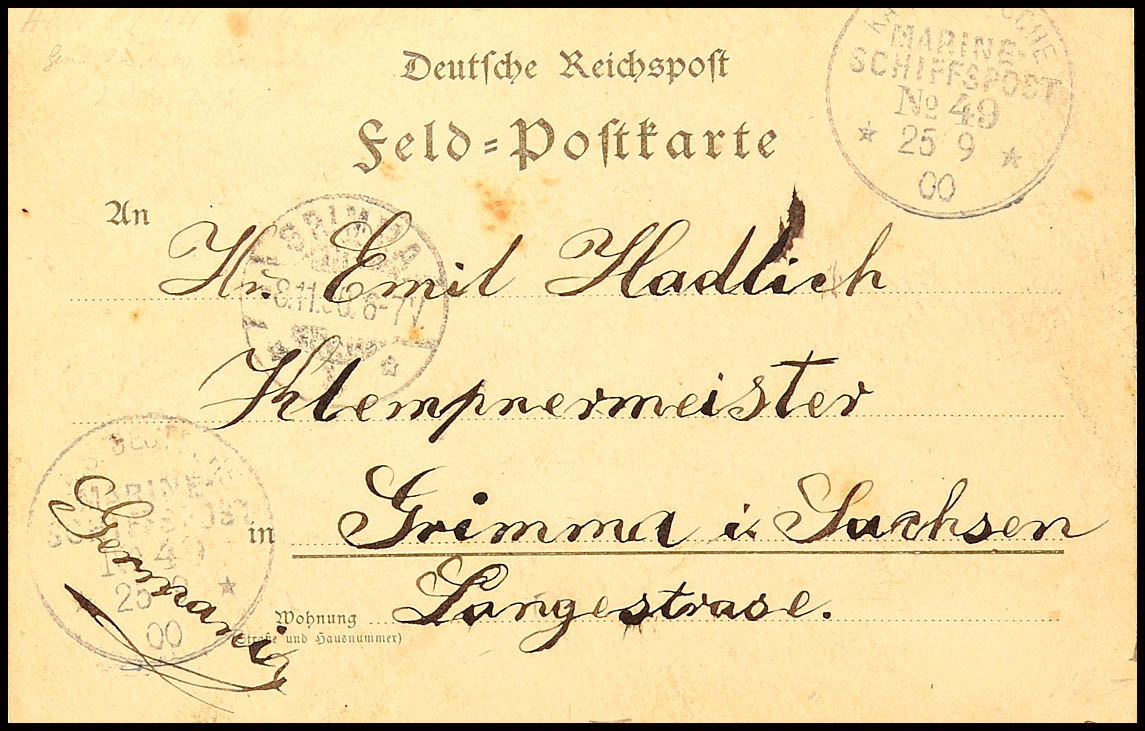 Deutsche Reichspost
Feld=Postkarte
MARINE-
SCHIFFSPOST
No 49
25 9
00
An
Hn. Emil Hadlich
GRIMMA
8.11.00.6-7V.
Klempnermeister
MARINE-
49
25 9
00
in Grimma i. Sachsen
Germania
Wohnung Langestrase.
(Straße und Hausnummer)